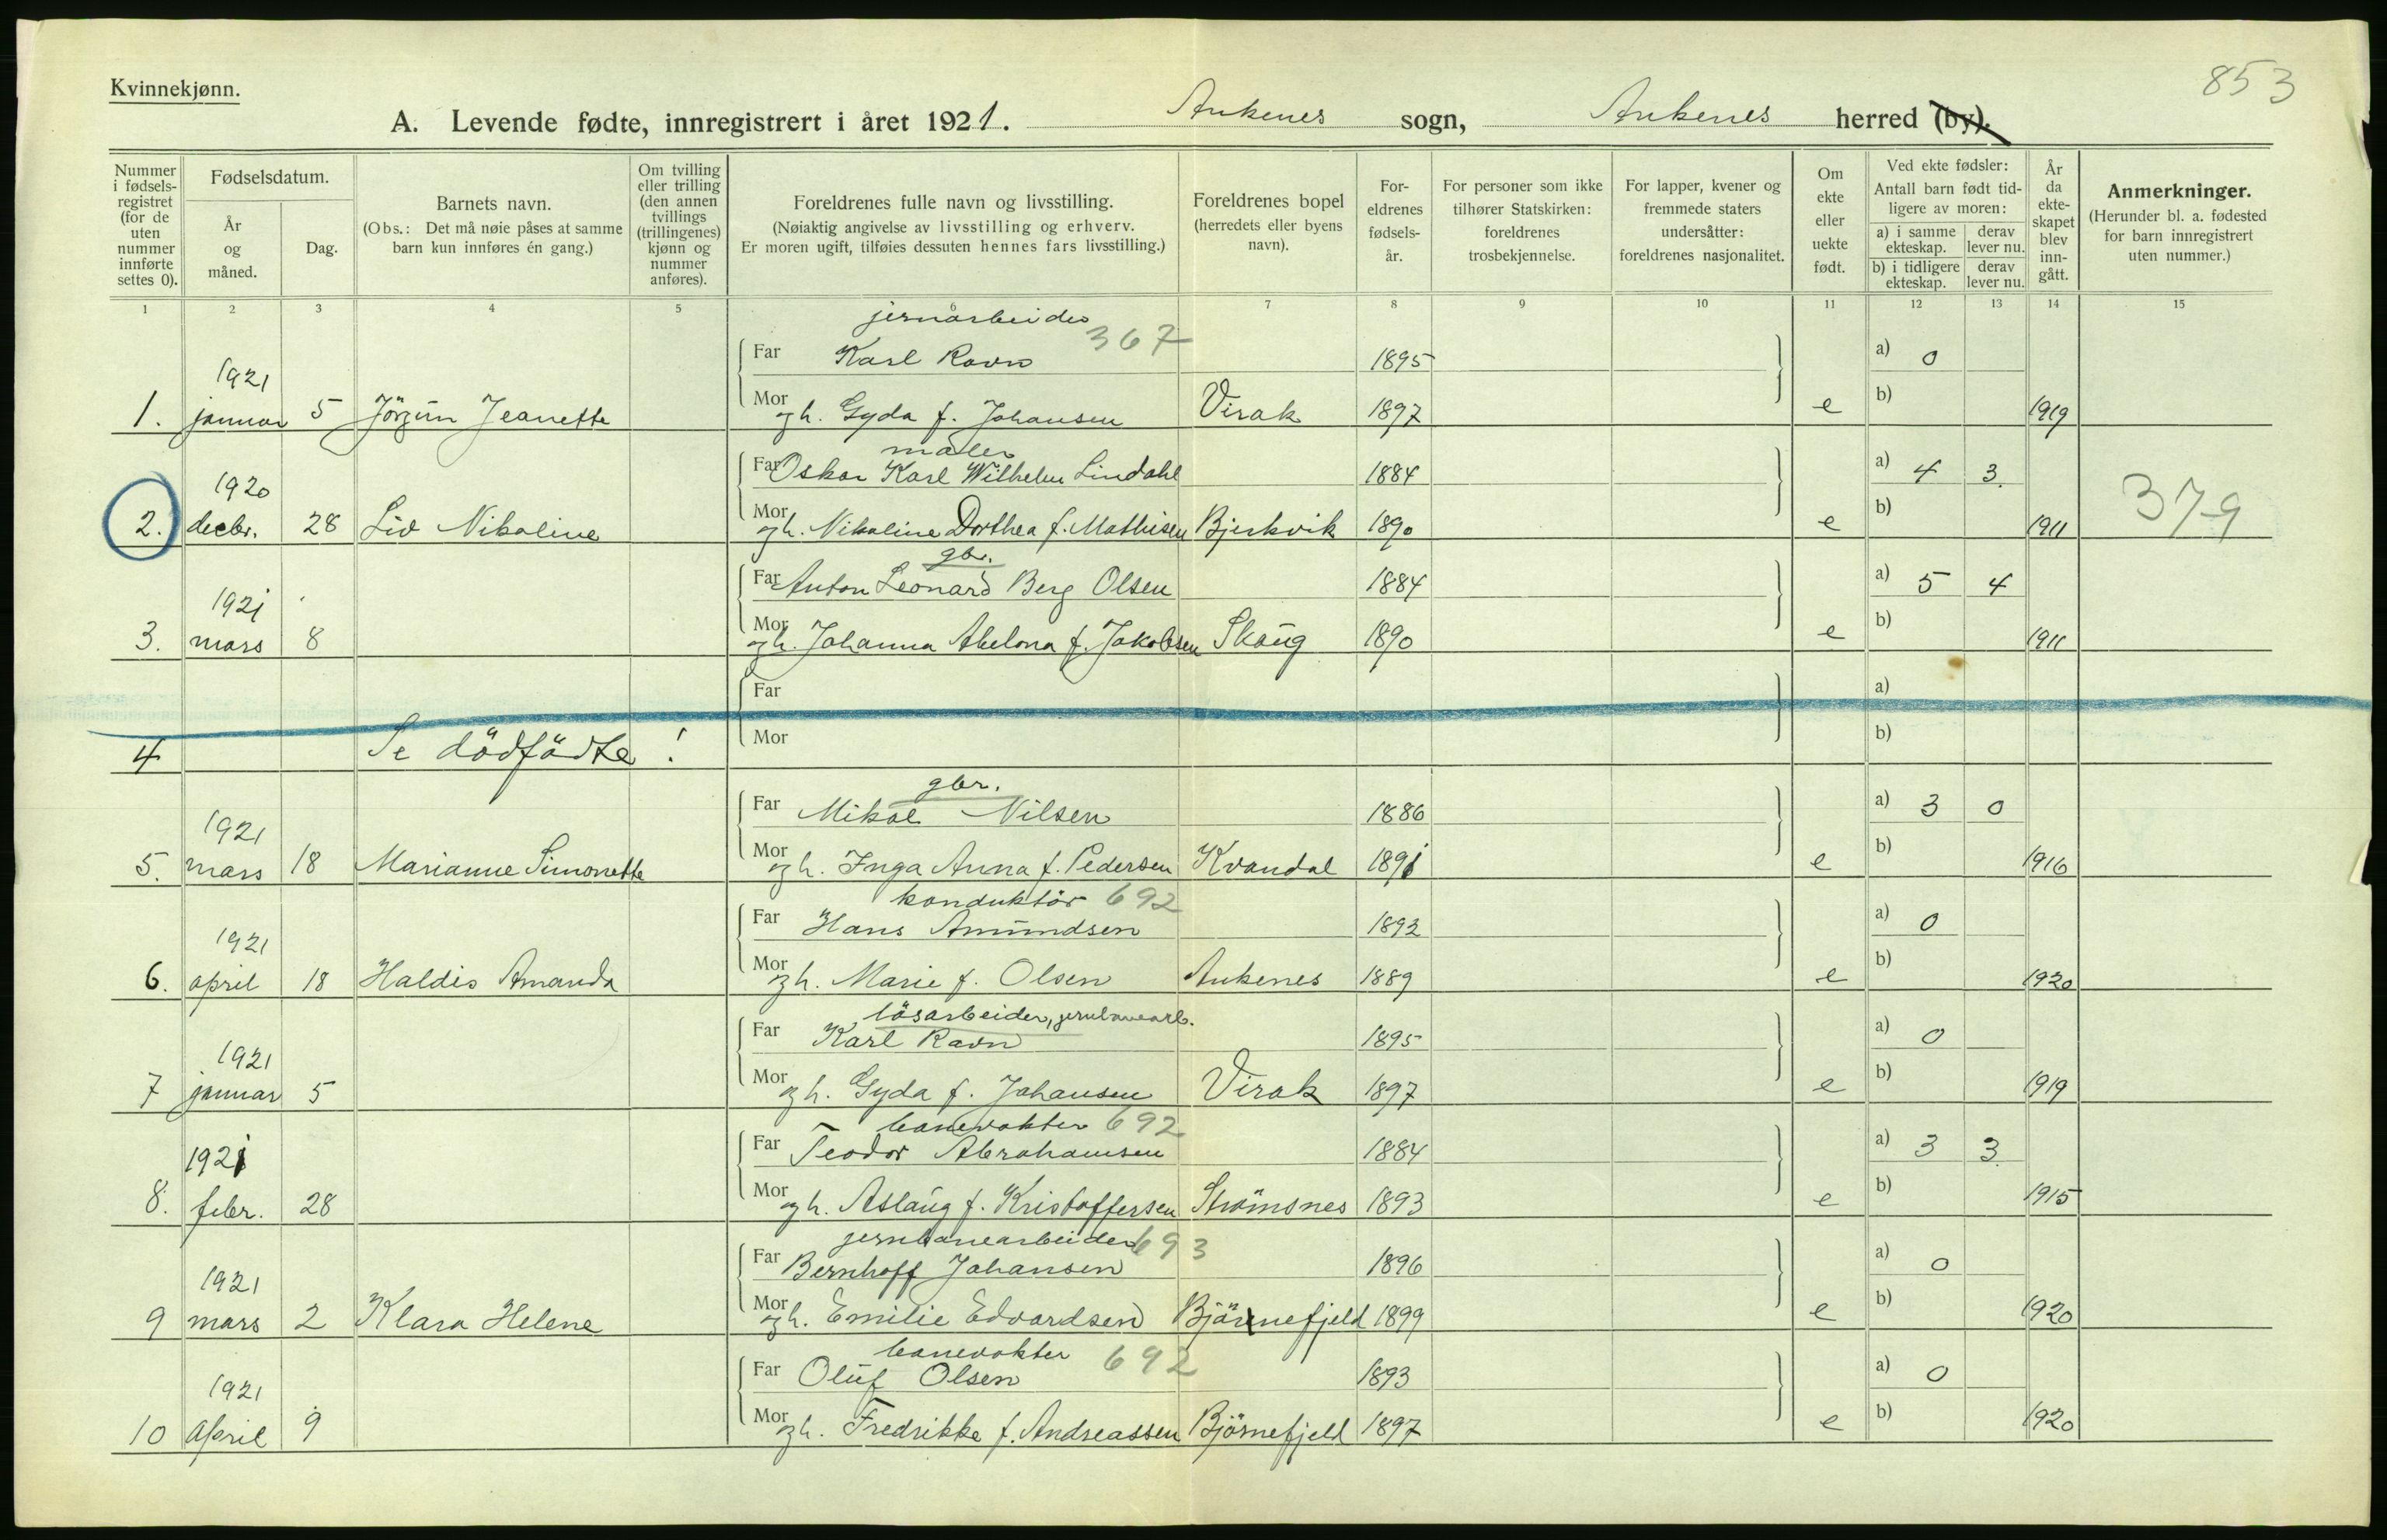 853
Kvinnekjønn.
A. Levende fødte, innregistrert i året 1921. Ankenes sogn, Ankenes herred (by).
Nummer i fødsels-registret (for de uten nummer innførte settes 0).
Fødselsdatum.
År og måned.
Dag.
Barnets navn.
(Obs.: Det må nøie påses at samme barn kun innføres én gang.)
Om tvilling eller trilling (den annen tvillings (trillingenes) kjønn og nummer anføres).
Foreldrenes fulle navn og livsstilling.
(Nøiaktig angivelse av livsstilling og erhverv. Er moren ugift, tilføies dessuten hennes fars livsstilling.)
Foreldrenes bopel (herredets eller byens navn).
For-eldrenes fødsels-år.
For personer som ikke tilhører Statskirken: foreldrenes trosbekjennelse.
For lapper, kvener og fremmede staters undersåtter: foreldrenes nasjonalitet.
Om ekte eller uekte født.
Ved ekte fødsler:
Antall barn født tid-ligere av moren:
a) i samme ekteskap. derav lever nu.
b) i tidligere ekteskap. derav lever nu.
År da ekte-skapet blev inn-gått.
Anmerkninger.
(Herunder bl. a. fødested for barn innregistrert uten nummer.)
1 2 3 4 5 6 7 8 9 10 11 12 13 14 15
jernarbeider 367
1921 Far Karl Ravn 1895 a) 0
1. januar 5 Jörgun Jeanette Mor og h. Gyda f. Johansen Virak 1897 e b) 1919
maler
1920 Far Oskar Karl Wilhelm Lindahl 1884 a) 4 3.
2. decbr. 28 Liv Nikoline Mor og h. Nikoline Dorthea f. Mathisen Bjerkvik 1890 e b) 1911 379
gbr.
1921 Far Anton Leonard Berg Olsen 1884 a) 5 4
3. mars 8 Mor og h. Johanna Abelona f. Jakobsen Skaug 1890 e b) 1911
Far a)
4 Se dödfödte! Mor b)
gbr.
1921 Far Mikal Nilsen 1886 a) 3 0
5. mars 18 Marianne Simonette Mor og h. Inga Anna f. Pedersen Kvandal 1891 e b) 1916
konduktör 692
1921 Far Hans Amundsen 1892 a) 0
6. april 18 Haldis Amanda Mor og h. Marie f. Olsen Ankenes 1889 e b) 1920
lösarbeider, jernbanearb.
1921 Far Karl Ravn 1895 a) 0
7 januar 5 Mor og h. Gyda f. Johansen Virak 1897 e b) 1919
banevokter 692
1921 Far Teodor Abrahamsen 1884 a) 3 3
8. febr. 28 Mor og h. Aslaug f. Kristoffersen Strömsnes 1893 e b) 1915
jernbanearbeider 693
1921 Far Bernhoff Johansen 1896 a) 0
9 mars 2 Klara Helene Mor og h. Emilie Edvardsen Björnefjeld 1899 e b) 1920
banevokter 692
1921 Far Oluf Olsen 1893 a) 0
10 April 9 Mor og h. Fredrikke f. Andreassen Björnefjeld 1897 e b) 1920